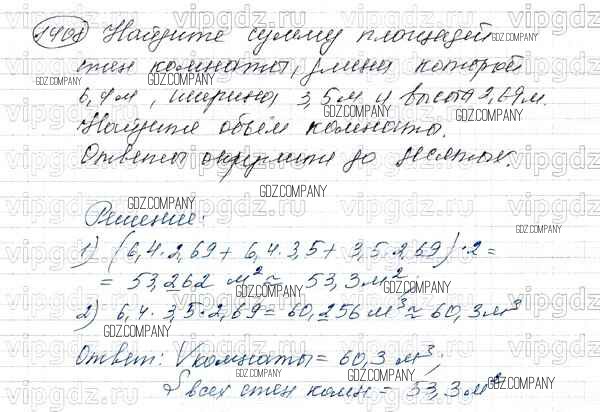 1408 Найдите сумму площадей
стен комнаты, длина которой
6,4 м, ширина 3,5 м и высота 2,69 м.
Найдите объём комнаты.
Ответы округлите до десятых.
Решение:
1) (6,4·2,69 + 6,4·3,5 + 3,5·2,69)·2 =
= 53,262 м² ≈ 53,3 м²
2) 6,4·3,5·2,69 = 60,256 м³ ≈ 60,3 м³
Ответ: Vкомнаты = 60,3 м³;
S всех стен комн = 53,3 м²